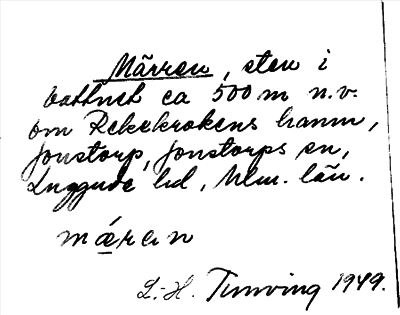 Märren, sten i
vattnet ca 500 m n.v.
om Rekekrokens hamn,
Jonstorp, Jonstorps sn,
Luggude hd, Mlm. län.
mǽrɛn
L.-H. Tunving 1949.